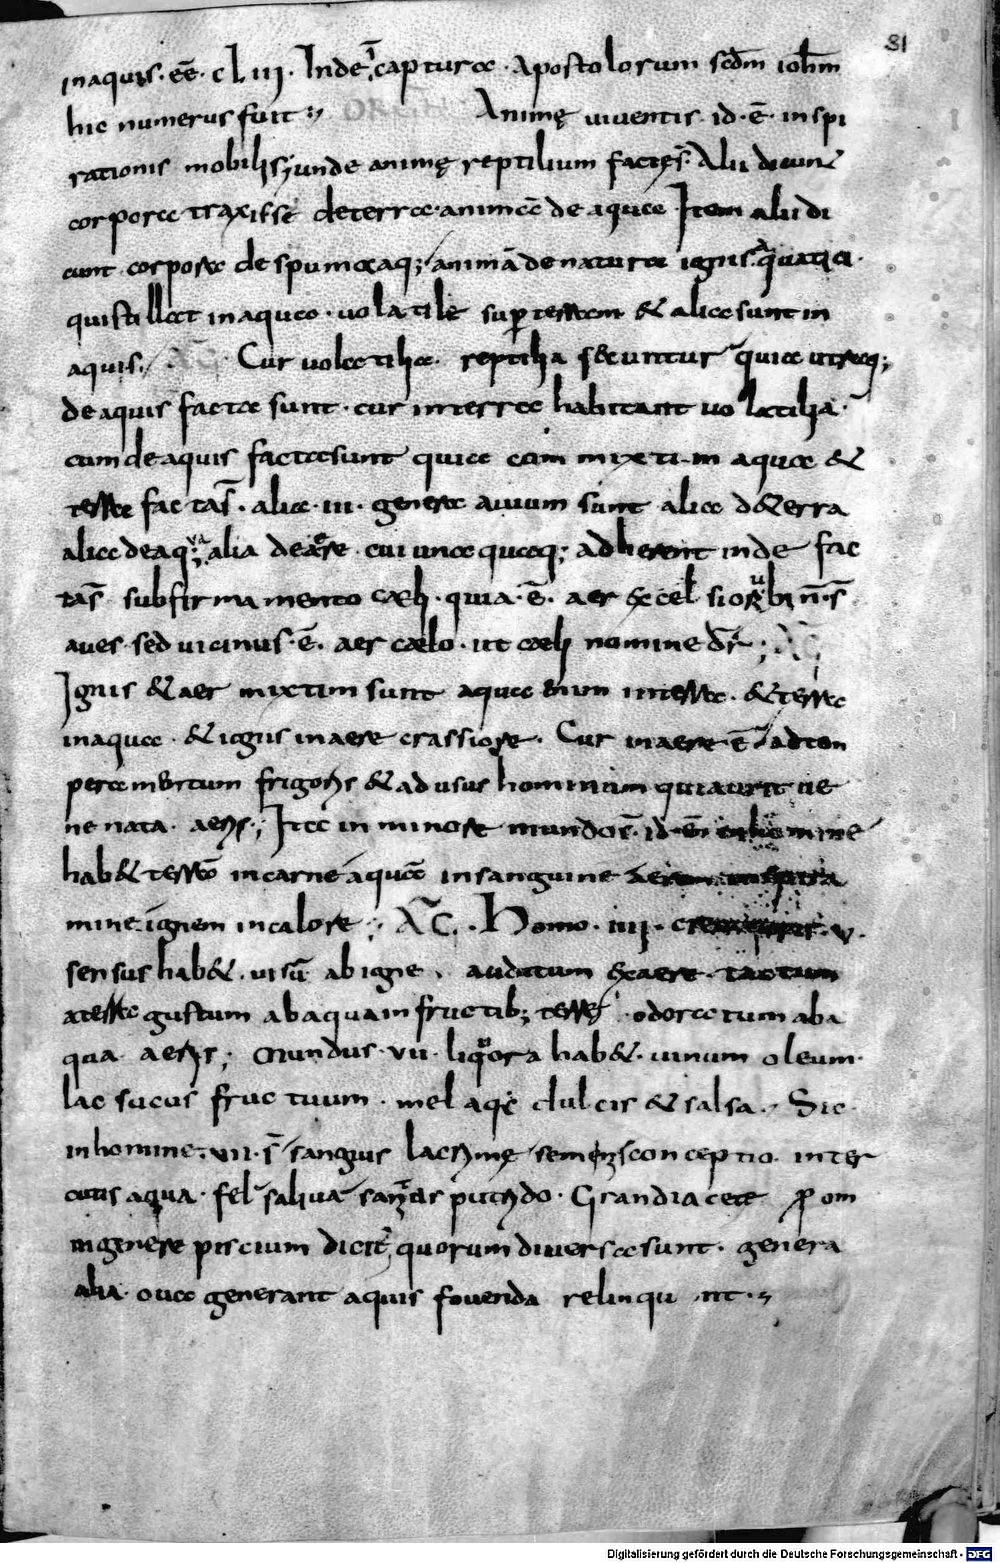 81
inaquis · eē · cLiii · Inde captura · Apostolorum scdm iohm
hic numerus fuit ORIGH Animę viventis · id · ē · inspi
rationis mobilis; unde animę reptilium factęs̄ · Alii dicunt
corpora traxisse deterra · animā de aqua Item alii di
cunt · corpora de spumaaq; animā denatura ignis · aquatici ·
quistillat inaqua · volatile sup terram & aliasuntin
aquis · AG Cur volatilia · reptilia secuntur quia utraq;
deaquis facta sunt · cur interra habitant volatilia ·
cumdeaquis factasunt quia cum mixtim aqua &
terra factas̄ · alia · iii · genera avium sunt alia d&erra
alia deaq; alia deaere · cui una quaq; adherent inde fac
tas̄ subfirmamento cæli · quia · ē · aer excelsiorubi n̄ · s̄
aves · sed vicinus · ē · aer cælo · ut cæli nomine dr̄ ; AG
Ignis & aer mixtim sunt aqua enim interra · & terra
inaqua · & ignis inaere crassiore · Cur inaere · ē adtem
peramentum frigoris & ad usus hominum quiaurit ve
ne nata · aeris · ; Ita in minore mundo s̄ · id · ē · inhomine
hab& terrā incarne aquā insanguine aerem inspira
mine · ignem incalore ; AG · Homo · iiii · v ·
sensus hab& · visū ab igne · auditum exaere · tactum
aterra gustum abaquainfructib; terrę · odoratum aba
qua · aeris ; Mundus · vii · liquora hab& · uinum oleum ·
lac sucus fructuum · mel aqa dulcis & salsa · Sic ·
inhomine · vii · s̄ sangius lacrimę semen conceptio · inter
cutis aqua · fel saliva putrido · Grandia cete p om
nigenere piscium dicit quorum diversasunt · genera
alia · ova generant aquis fovenda relinquunt ·
Digitalisierung gefördert durch die Deutsche Forschungsgemeinschaft - DFG